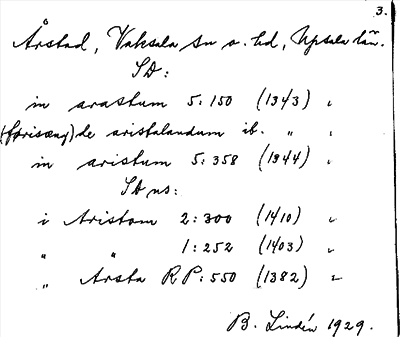 3.
Årstad, Vaksala sn o. hd, Upsala län.
SD:
in arastum 5:150 (1343) ,
(forisæng) de aristalandum ib. " ,
in aristum 5:358 (1344) ,
SD ns:
i Aristom 2:300 (1410) ,
" " 1:252 (1403) ,
" Arsta RP:550 (1382) ,
B. Lindén 1929.